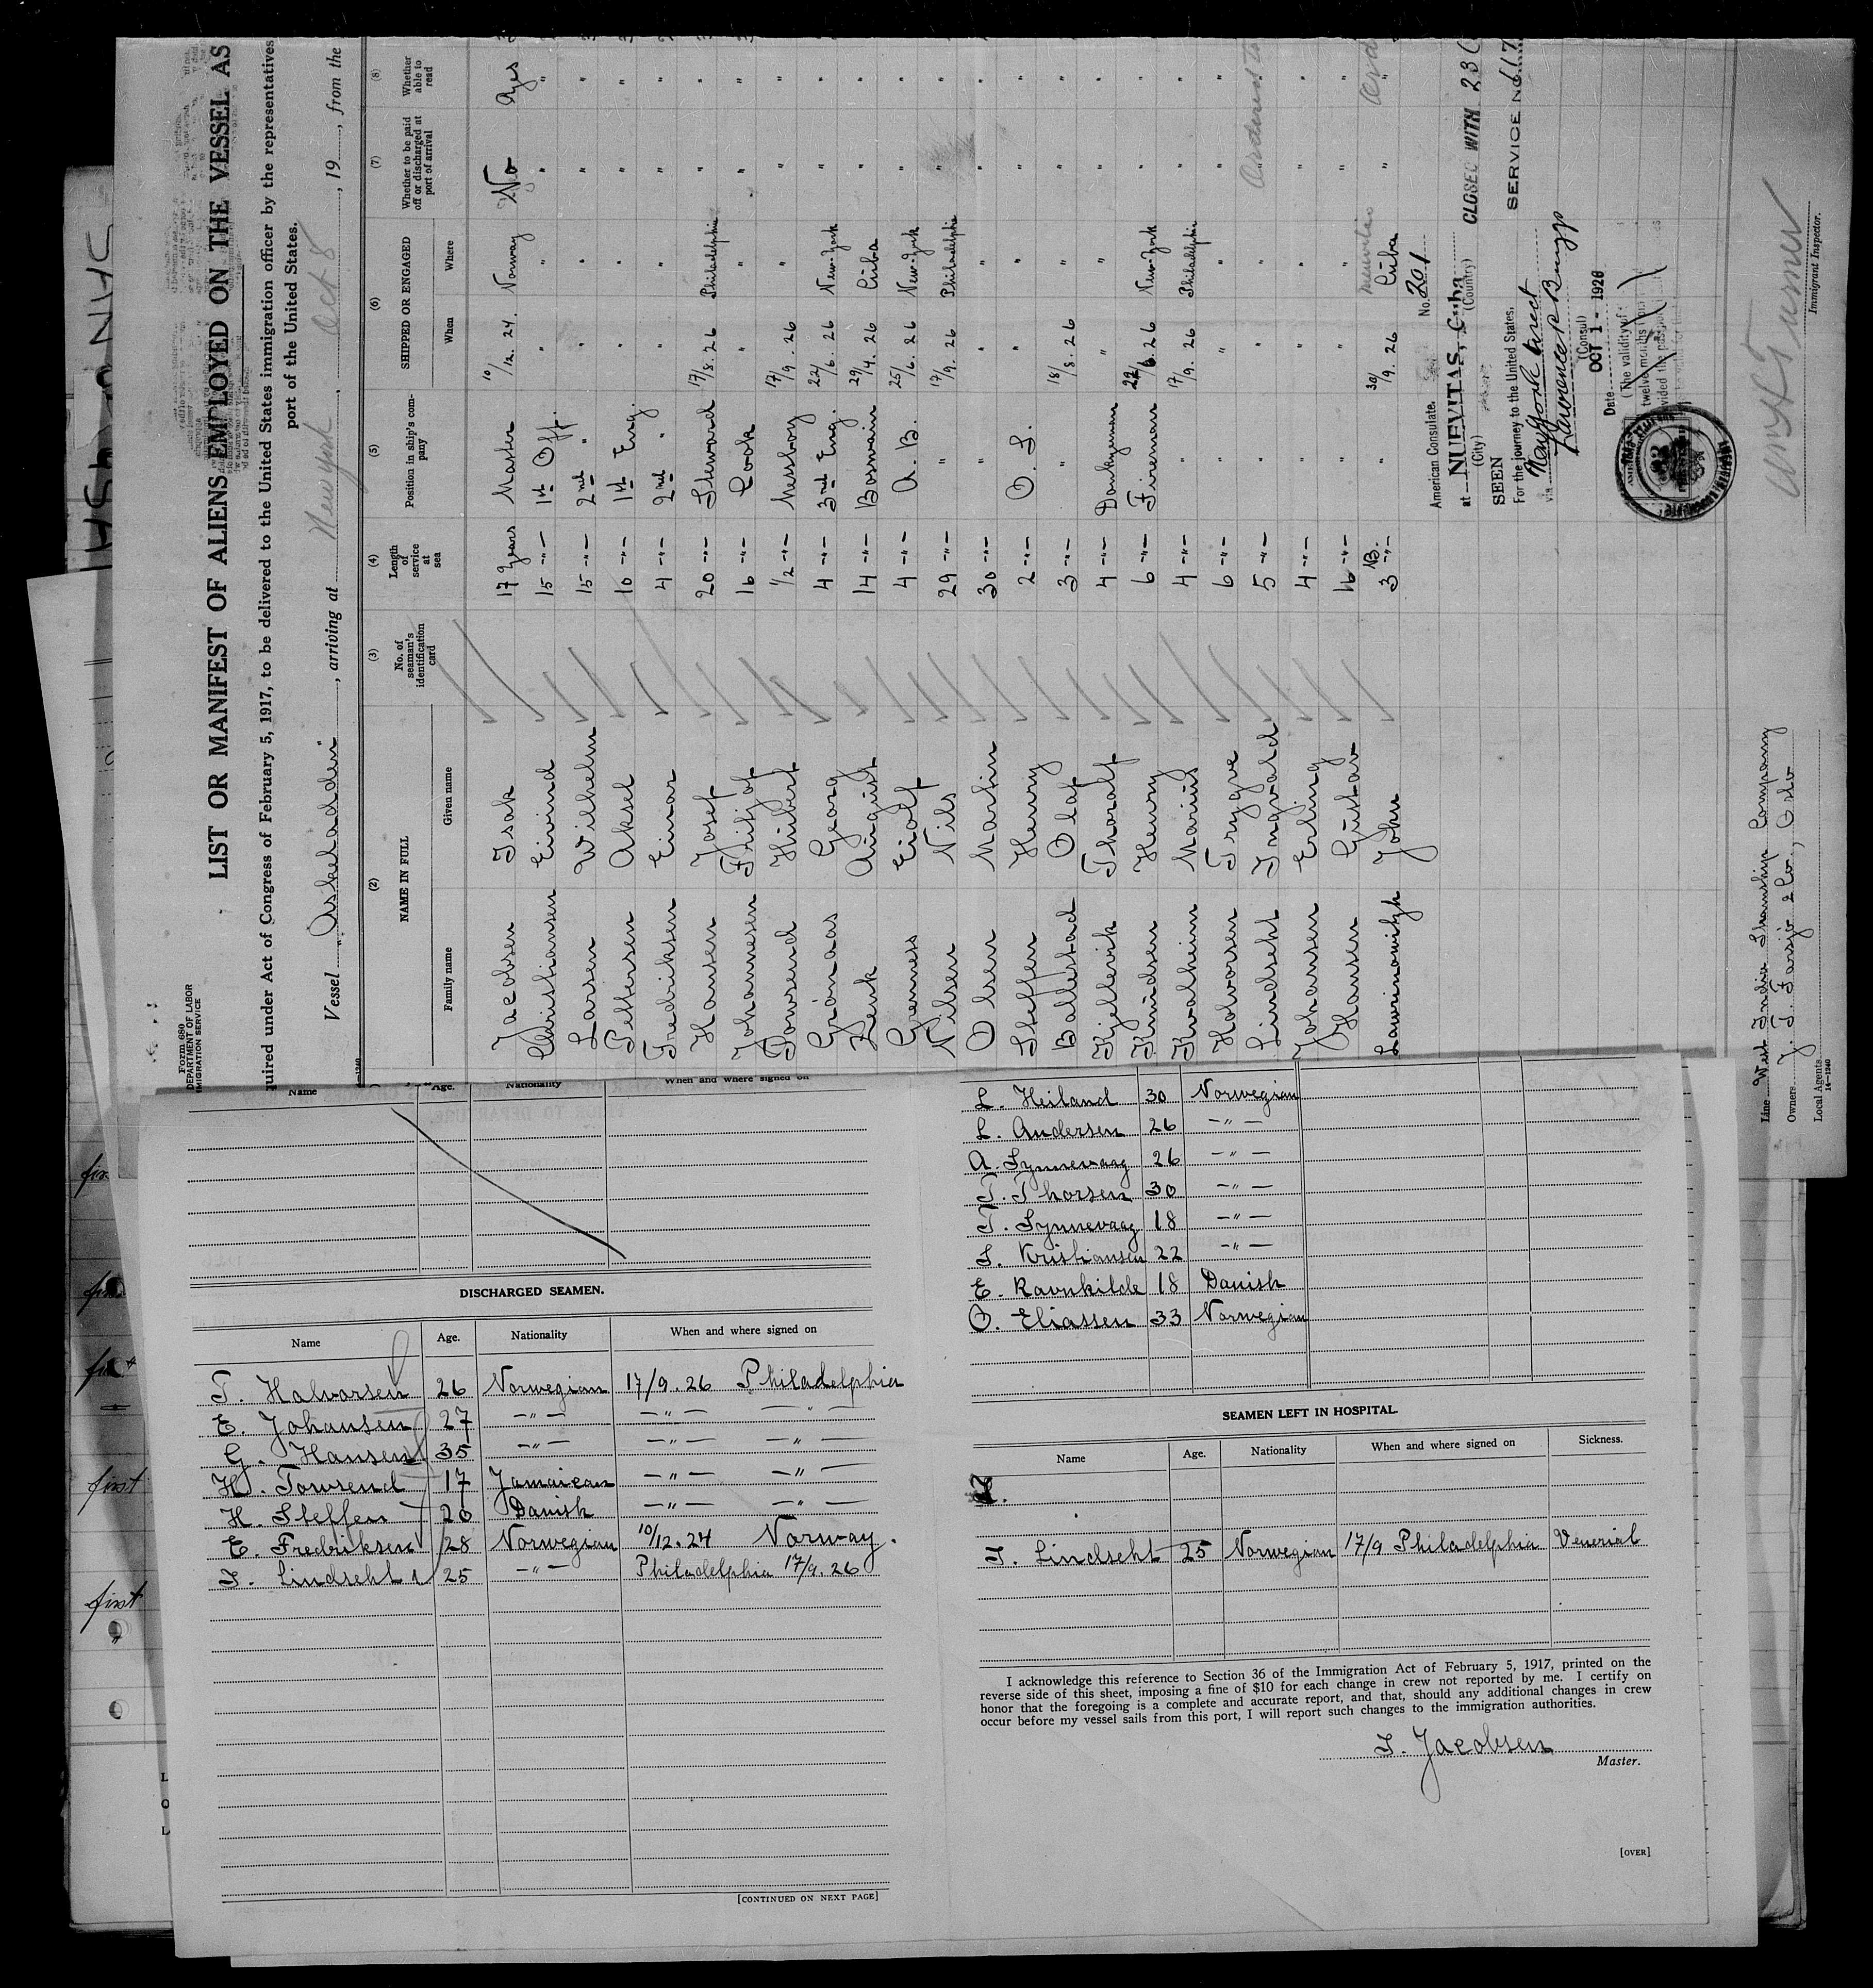 Form 680
DEPARTMENT OF LABOR
IMMIGRATION SERVICE
LIST OR MANIFEST OF ALIENS EMPLOYED ON THE VESSEL AS
quired under Act of Congress of February 5, 1917, to be delivered to the United States immigration officer by the representatives
port of the United States.
Vessel "Askeladden", arriving at New York, Oct 8, 19, from the
(2) (3) (4) (5) (6) (7) (8)
NAME IN FULL No. of seaman's identification card Length of service at sea Position in ship's company SHIPPED OR ENGAGED Whether to be paid off or discharged at port of arrival Whether able to read
Family name Given name When Where
Jacobsen Isak 17 years Master 10/12. 24. Norway No
Christiansen Eivind 15 -"- 1st Off. " " " "
Larsen Wilhelm 15 -"- 2nd " " " " "
Pettersen Aksel 10 -"- 1st Eng. " " " "
Fredriksen Einar 4 -"- 2nd " " " " "
Hansen Josef 20 -"- Steward 17/8. 26 Philadelphia " "
Johannesen Fritjof 16 -"- Cook " " " "
Townsend Hubert 1/2 -"- Messboy 17/9. 26 " " "
Grönaas Georg 4 -"- 3rd Eng. 22/6. 26 New-York " "
Zenk August 14 -"- Boswain 29/4. 26 Cuba " "
Grennes Eiolf 4 -"- A. B. 25/6. 26 New-York " "
Nilsen Nils 29 -"- " 17/9. 26 Philadelphia " "
Olsen Martin 30 -"- " " " " "
Steffen Henry 2 -"- O. S. " " " "
Ballestad Olaf 3 -"- " 18/8. 26 " " "
Kjellevik Thoralf 4 -"- Donkeyman " " " "
Knudsen Henry 6 -"- Fireman 22/6. 26 New-York " "
Kvalheim Marius 4 -"- " 17/9. 26 Philadelphia " "
Halvorsen Trygve 6 -"- " " " " "
Lindseht Ingvald 5 -"- " " " "
Johansen Erling 4 -"- " " " " "
Hansen Gustav 16 -"- " " " " "
Lawrinowitzh John 3 -"- " 30/9. 26 Cuba " "
American Consulate. No. 201
at NUEVITAS, Cuba
(City) (Country)
CLOSED WITH
SEEN
SERVICE No.
For the journey to the United States,
via New York direct
(Consul)
Date OCT 1 - 1926
(The validity of
twelve months from
vided the passport
Immigrant Inspector.
Line West India Steamship Company
Owners
Local Agents
14—1240
Name Age. Nationality When and where signed on
DISCHARGED SEAMEN.
Name Age. Nationality When and where signed on
T. Halvorsen 26 Norwegian 17/9. 26 Philadelphia
E. Johansen 27 -"- -"- -"-
G. Hansen 35 -"- -"- -"-
H. Townsend 17 Jamaican -"- -"-
H. Steffen 20 Danish -"- -"-
E. Fredriksen 28 Norwegian 10/12. 24 Norway.
I. Lindseht 25 -"- Philadelphia 17/9. 26
[CONTINUED ON NEXT PAGE]
L. Heiland 30 Norwegian
L. Andersen 26 -"-
A. Synnevaag 26 -"-
T. Thorsen 30 -"-
T. Synnevaag 18 -"-
S. Kristiansen 22 -"-
E. Ravnkilde 18 Danish
O. Eliassen 33 Norwegian
SEAMEN LEFT IN HOSPITAL.
Name Age. Nationality When and where signed on Sickness.
I. Lindseht 25 Norwegian 17/9 Philadelphia Venerial
I acknowledge this reference to Section 36 of the Immigration Act of February 5, 1917, printed on the
reverse side of this sheet, imposing a fine of $10 for each change in crew not reported by me. I certify on
honor that the foregoing is a complete and accurate report, and that, should any additional changes in crew
occur before my vessel sails from this port, I will report such changes to the immigration authorities.
I. Jacobsen
Master.
[OVER]
first
first